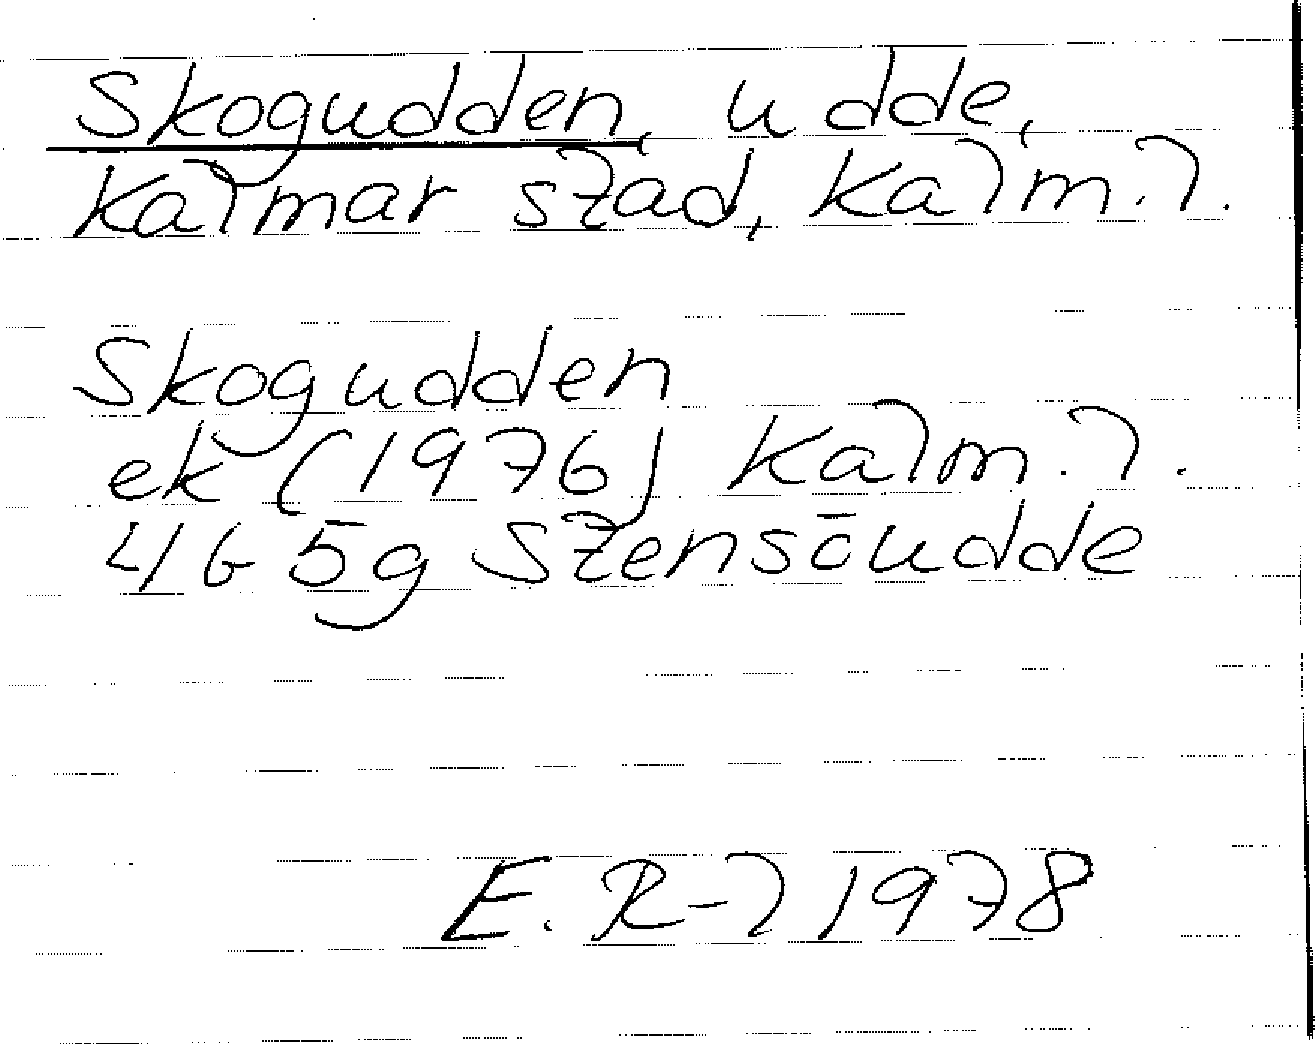 Skogudden, udde,
Kalmar stad, Kalm. l.
Skogudden
ek (1976) Kalm. l.
4G 5g Stensöudde
E. R-l 1978